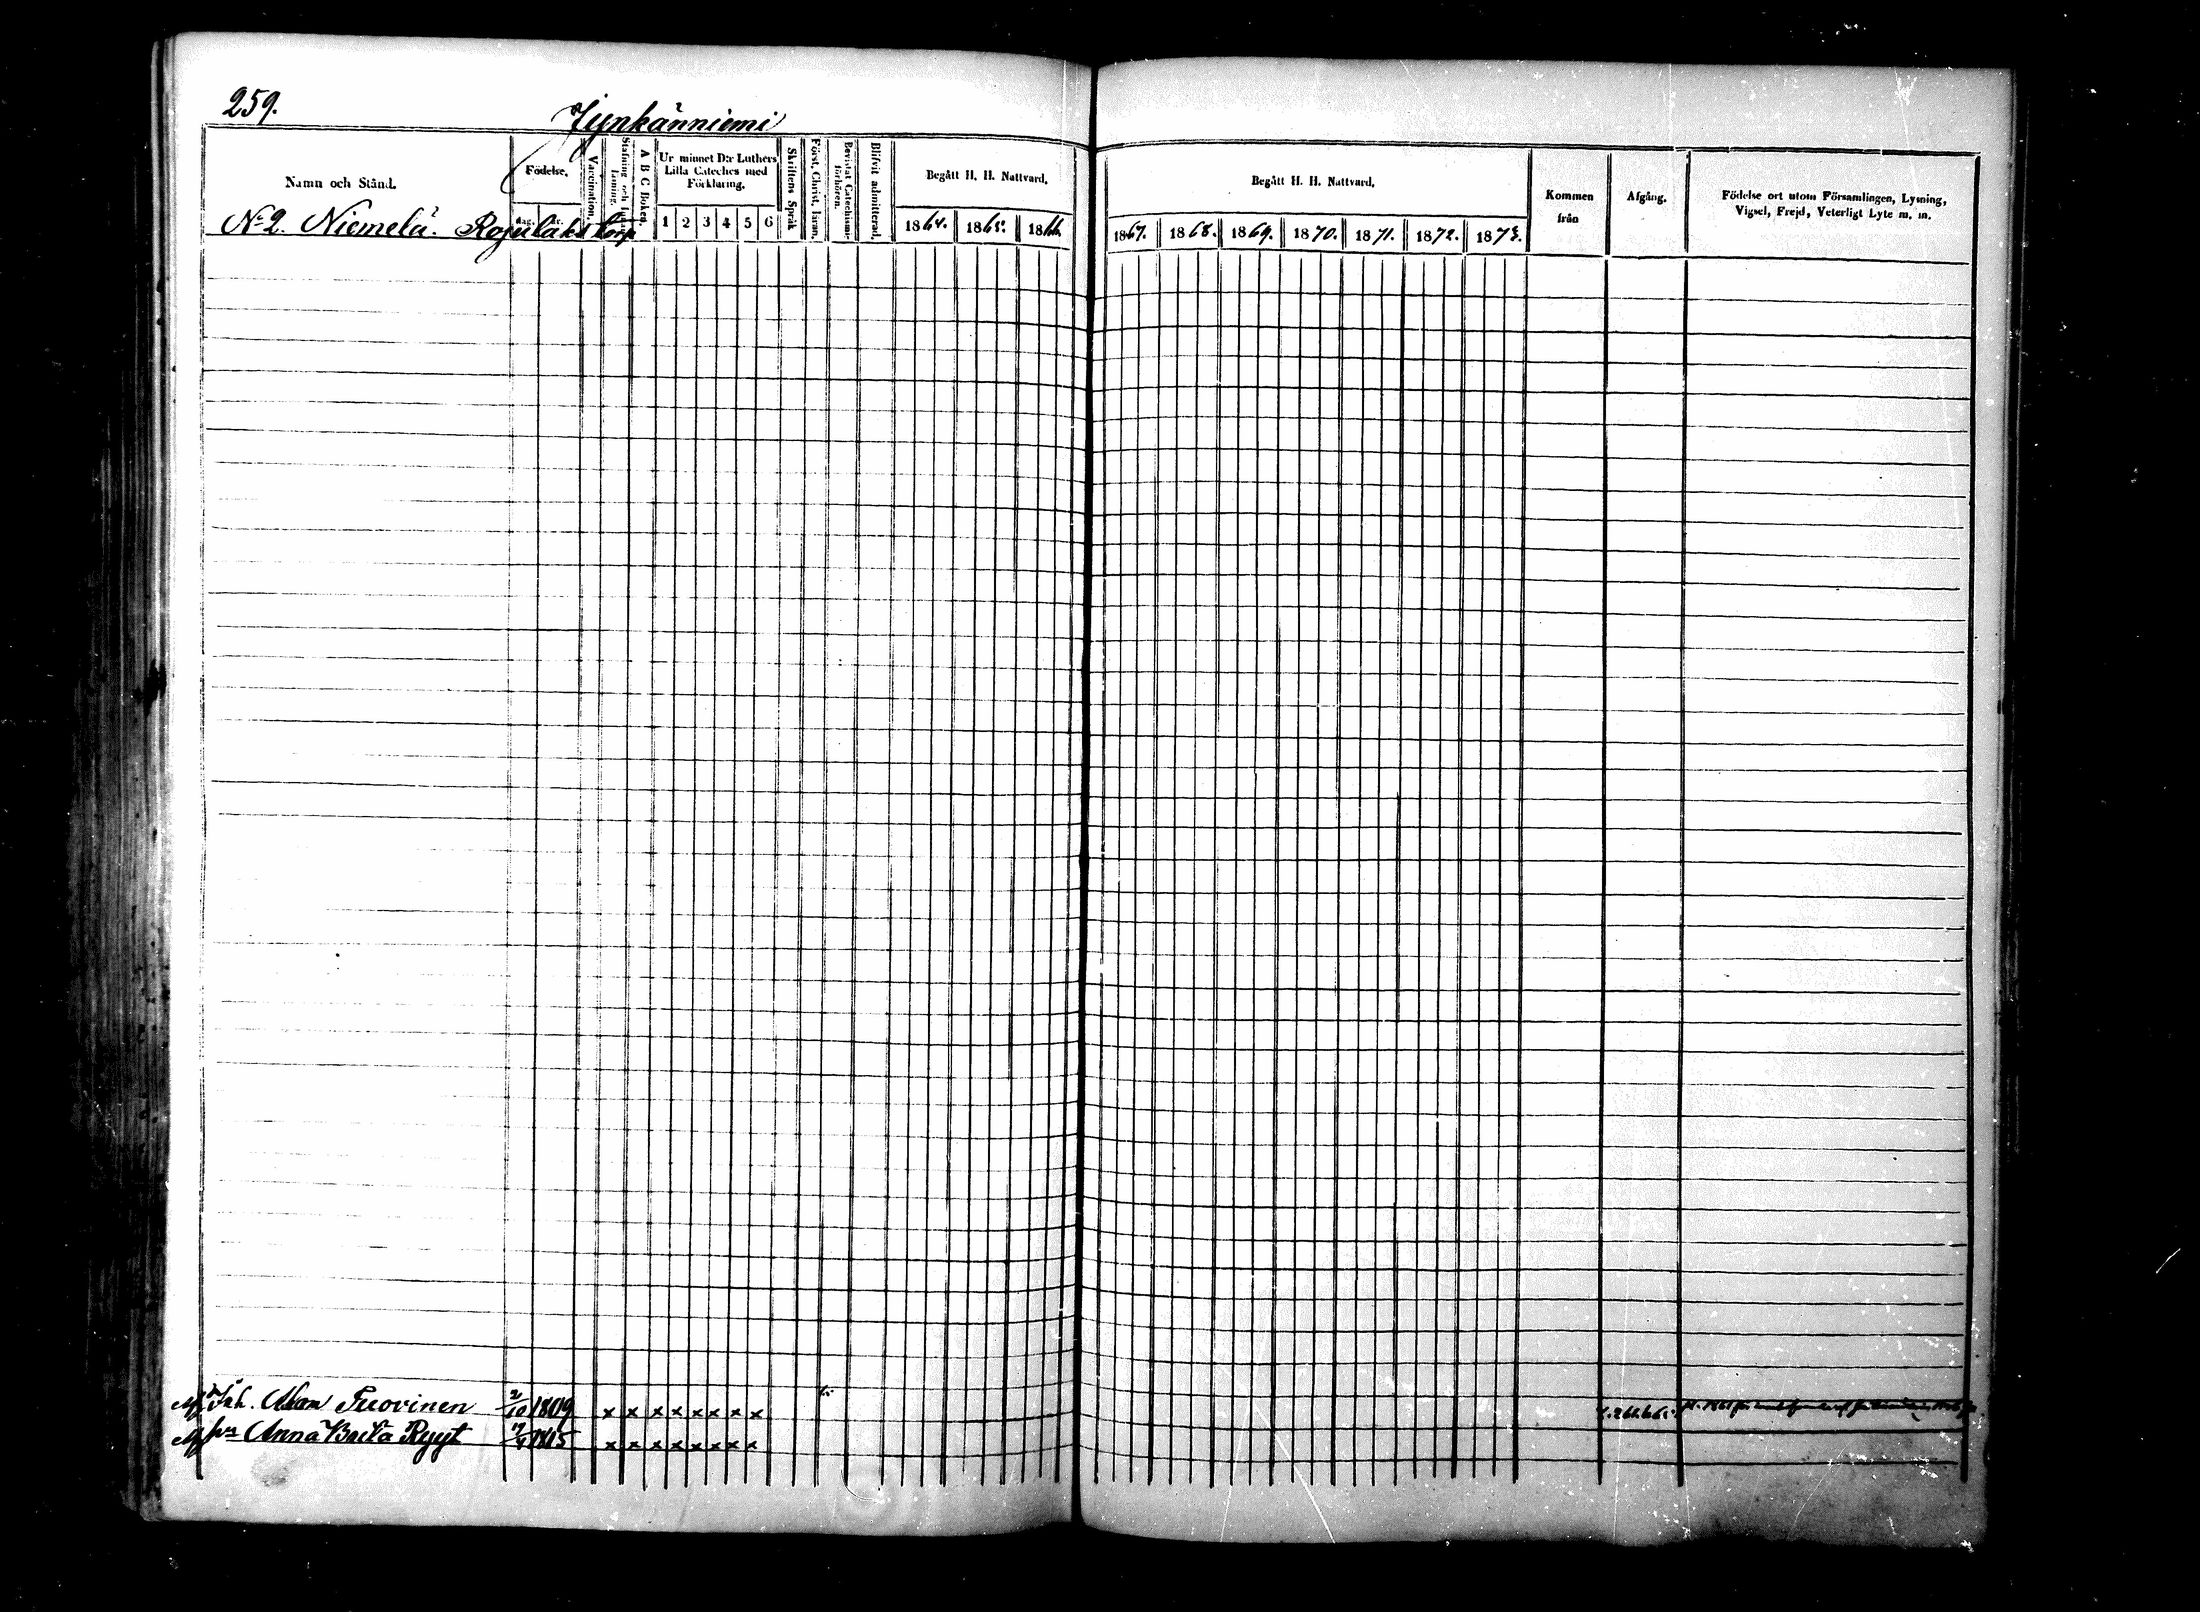 259.
Jynkänniemi
Namn och Stånd.
Födelse.
dag. år.
Vaccination.
Stafning och Innanläsning.
A B C Boken.
Ur minnet D:r Luthers Lilla Cateches med Förklaring.
1 2 3 4 5 6
Skriftens Språk
Först. Christ. läran.
Bevistat Catechismi förhören.
Blifvit admitterad.
Begått H. H. Nattvard.
1864. 1865. 1866.
Begått H. H. Nattvard.
1867. 1868. 1869. 1870. 1871. 1872. 1873.
Kommen från
Afgång.
Födelse ort utom Församlingen, Lysning, Vigsel, Frejd, Veterligt Lyte m. m.
No 2. Niemelä. torp
Joh. Adam Tuovinen 2/10 1809 x x x x x x x x
Anna Brita Ryyt 1815 x x x x x x x x